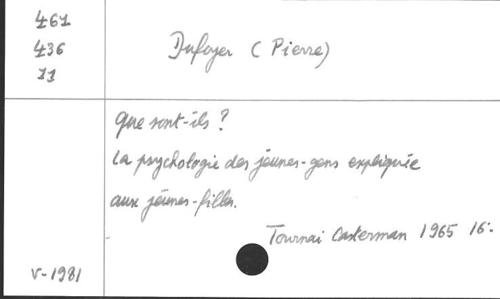 461
436
11
Dufoyer (Pierre)
Que sont-ils ?
La psychologie des jeunes-gens expliquée
aux jeunes-filles.
Tournai Casterman 1965 16:
V-1981